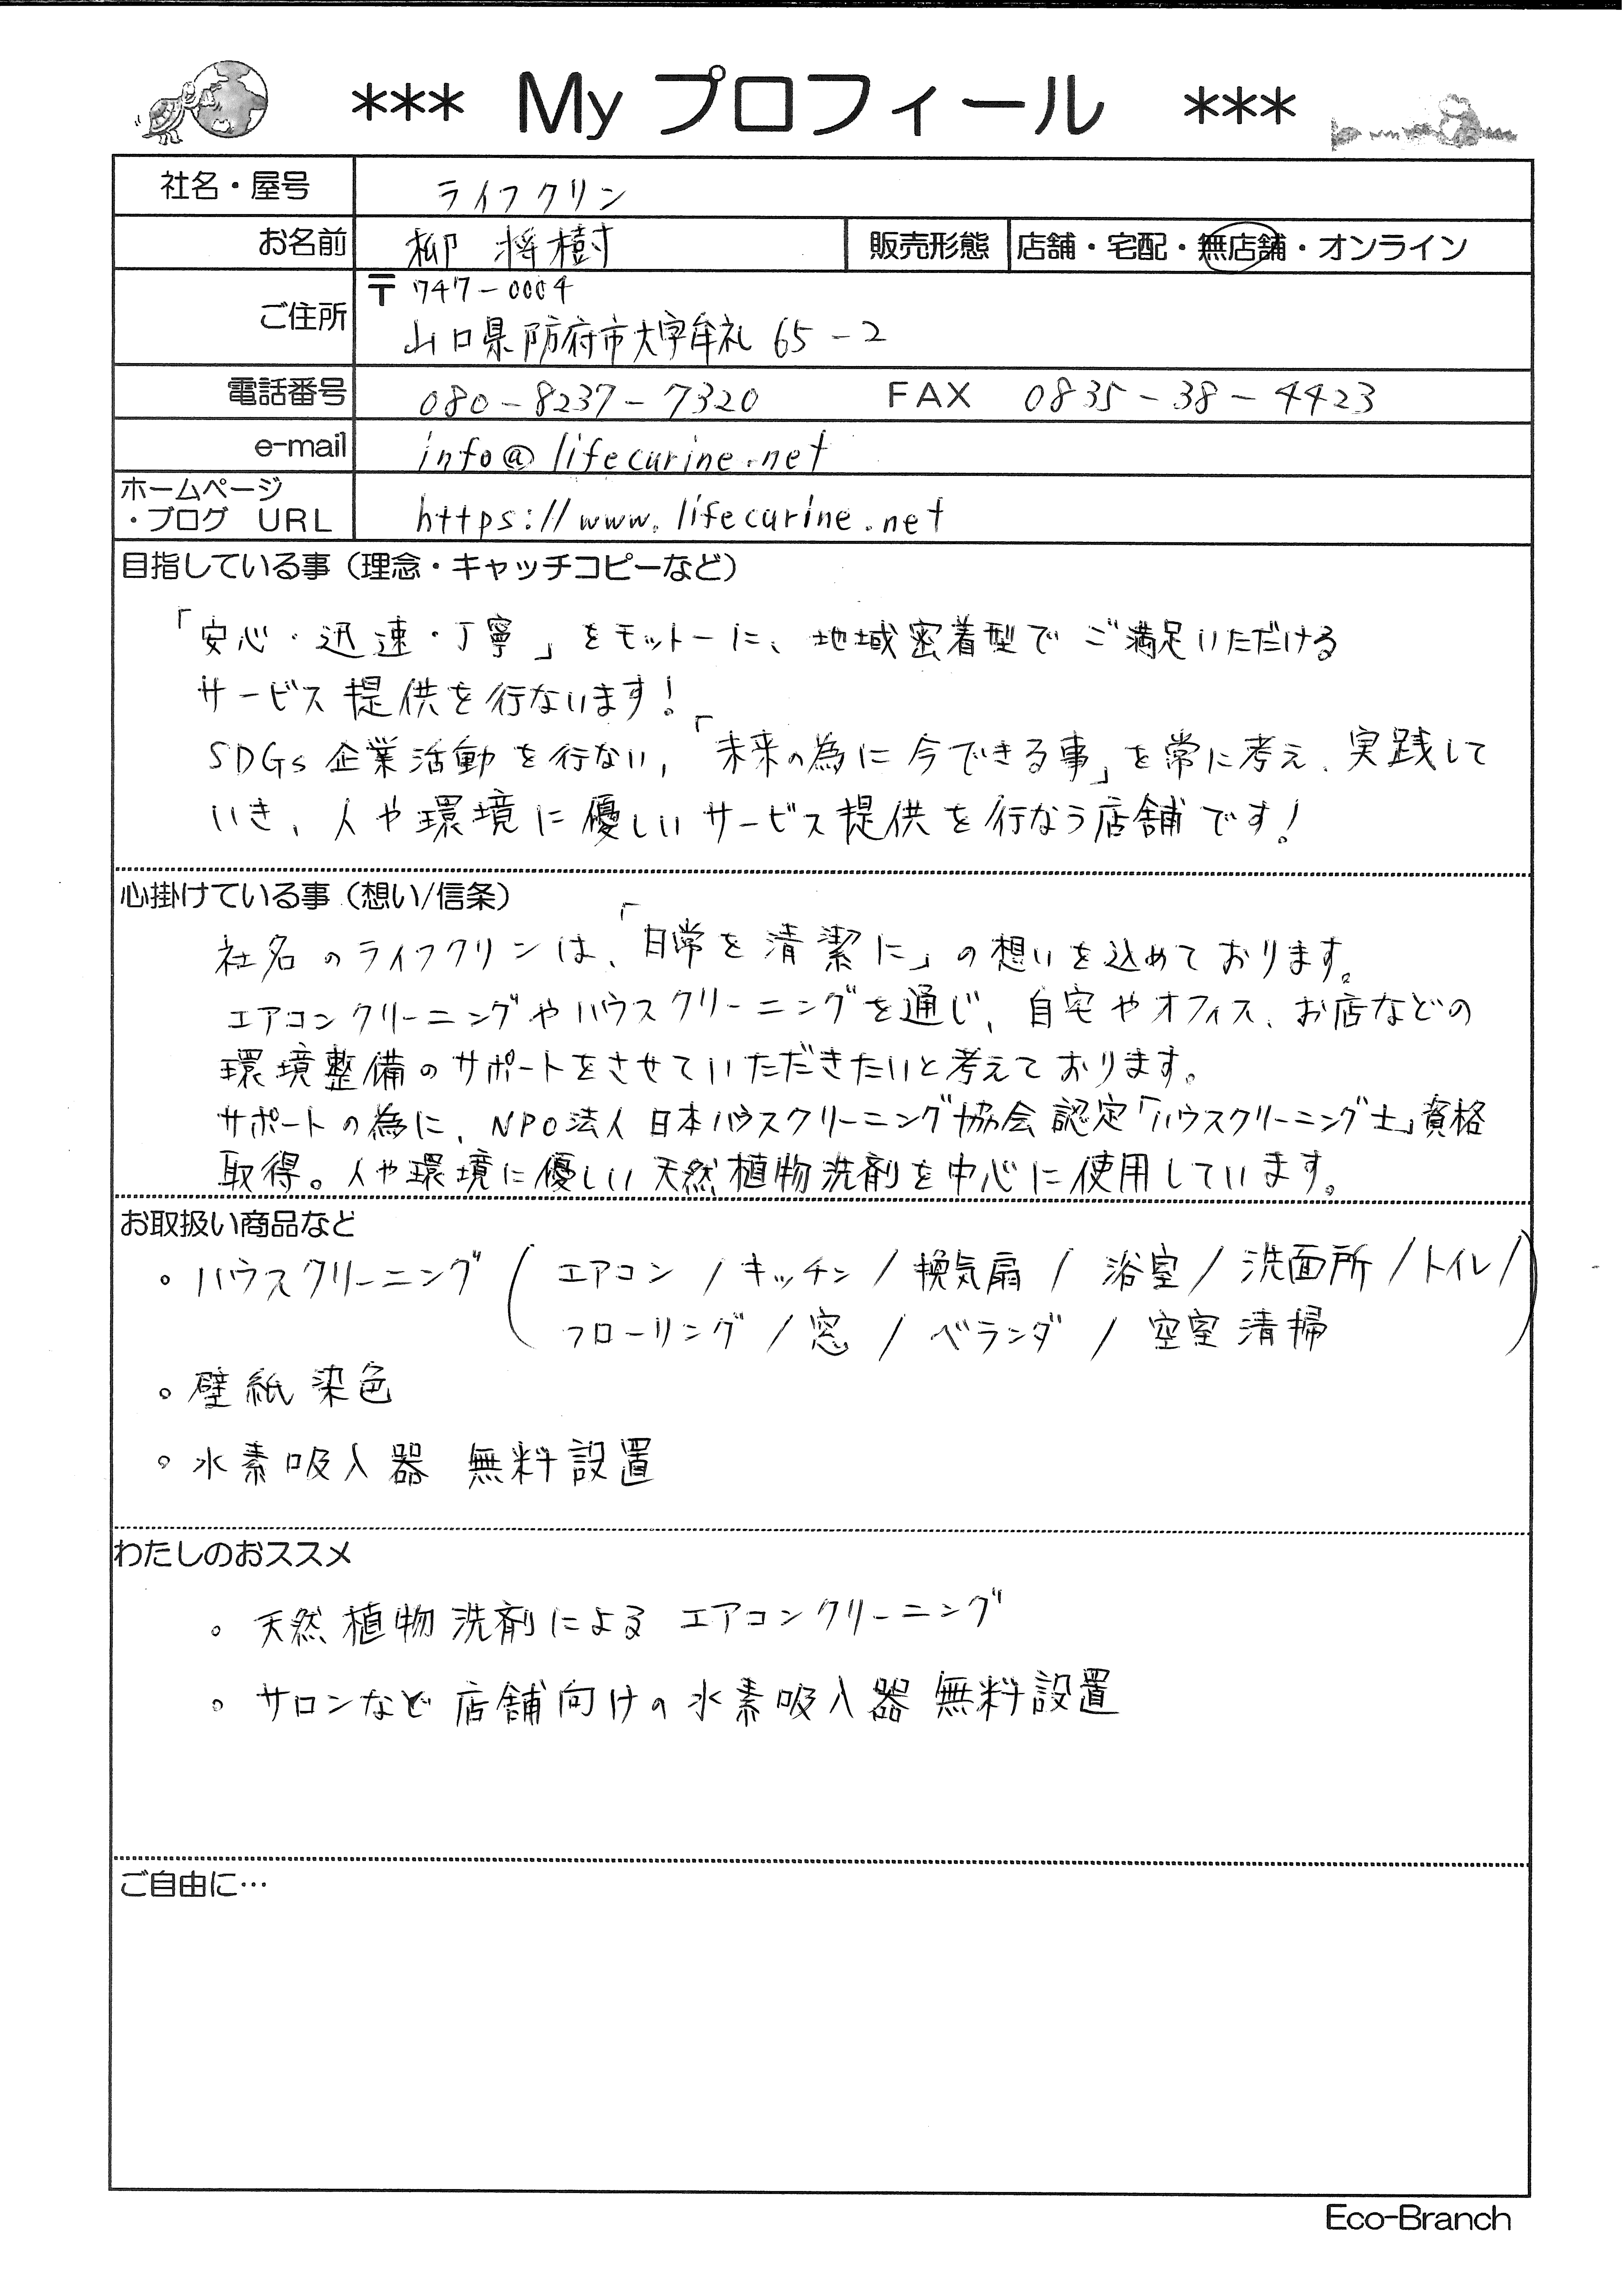 *** My プロフィール ***
社名・屋号 ライフクリン
お名前 柳 将樹 販売形態 店舗・宅配・無店舗・オンライン
ご住所 〒747-0004
山口県防府市大字牟礼 65-2
電話番号 080-8237-7320 FAX 0835-38-4423
e-mail info@lifecurine.net
ホームページ
・ブログ URL https://www.lifecurine.net
目指している事（理念・キャッチコピーなど）
「安心・迅速・丁寧」をモットーに、地域密着型でご満足いただける
サービス提供を行ないます!
SDGs企業活動を行ない,「未来の為に今できる事」を常に考え、実践して
いき、人や環境に優しいサービス提供を行なう店舗です!
心掛けている事（想い/信条）
社名のライフクリンは、「日常を清潔に」の想いを込めております。
エアコンクリーニングやハウスクリーニングを通じ、自宅やオフィス、お店などの
環境整備のサポートをさせていただきたいと考えております。
サポートの為に、NPO法人 日本ハウスクリーニング協会 認定「ハウスクリーニング士」資格
取得。人や環境に優しい天然植物洗剤を中心に使用しています。
お取扱い商品など
。ハウスクリーニング(エアコン/キッチン/換気扇/浴室/洗面所/トイレ/
フローリング/窓/ベランダ/空室清掃)
。壁紙染色
。水素吸入器 無料設置
わたしのおススメ
。天然植物洗剤による エアコンクリーニング
。サロンなど店舗向けの水素吸入器 無料設置
ご自由に…
Eco-Branch